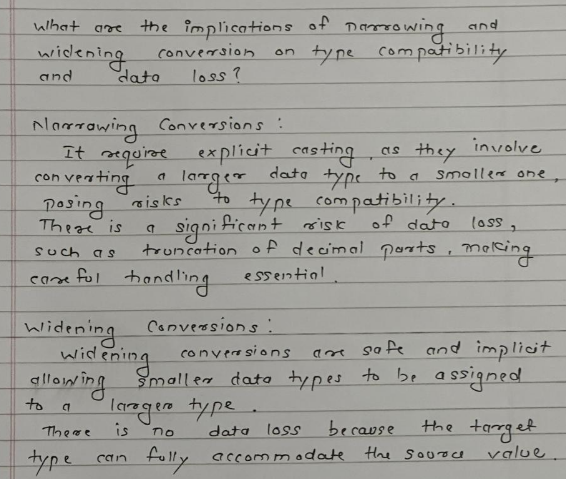 What are the implications of narrowing and
widening conversion on type compatibility
and data loss?
Narrowing Conversions :
It require explicit casting, as they involve
converting a larger data type to a smaller one,
posing risks to type compatibility.
There is a significant risk of data loss,
such as truncation of decimal parts, making
careful handling essential.
Widening Conversions :
Widening conversions are safe and implicit
allowing smaller data types to be assigned
to a larger type.
There is no data loss because the target
type can fully accommodate the source value.